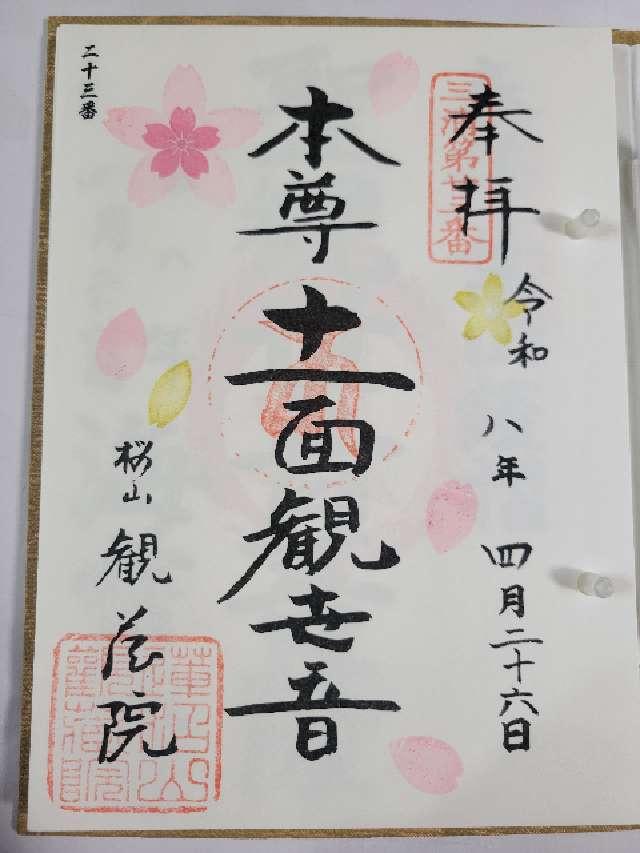 奉拝
三浦第廿三番
令和八年四月二十六日
本尊十一面観世音
桜山 観蔵院
二十三番